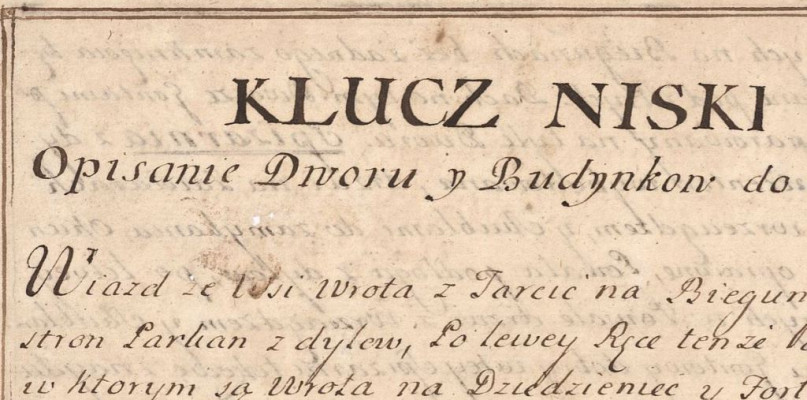 KLUCZ NISKI
Opisanie Dworu y Budynkow do
Wiazd ze Wsi Wrota z Tarcic na Biegun
stron Parkan z dylow, Po lewey Ręce tenże
w ktorym są Wrota na Dziedzieniec y Fort